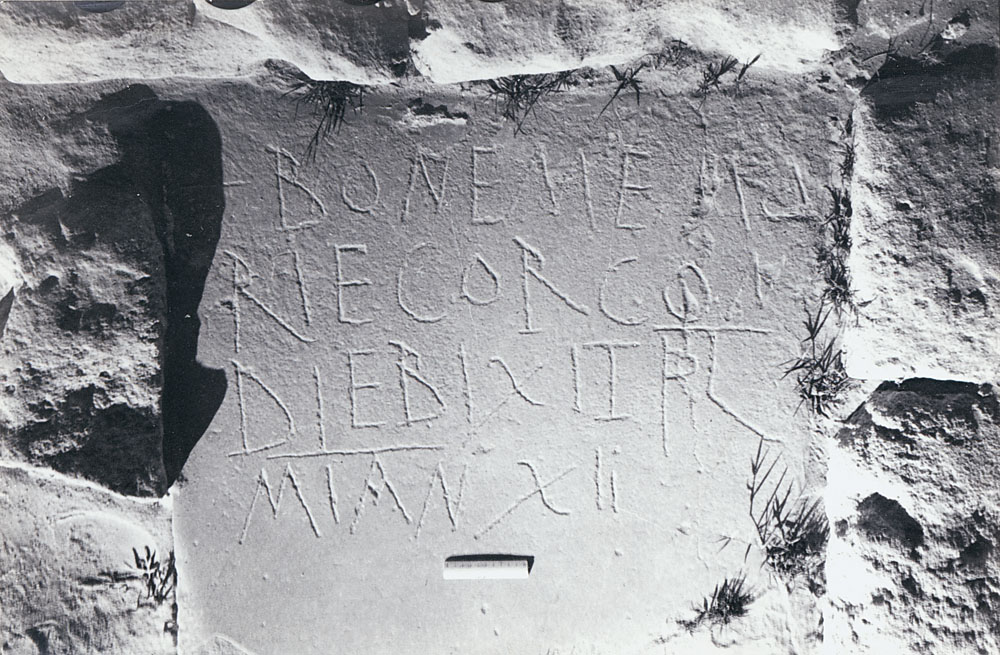 BONEME
RIECORCO
DIEBIXIT PL
MIANXII